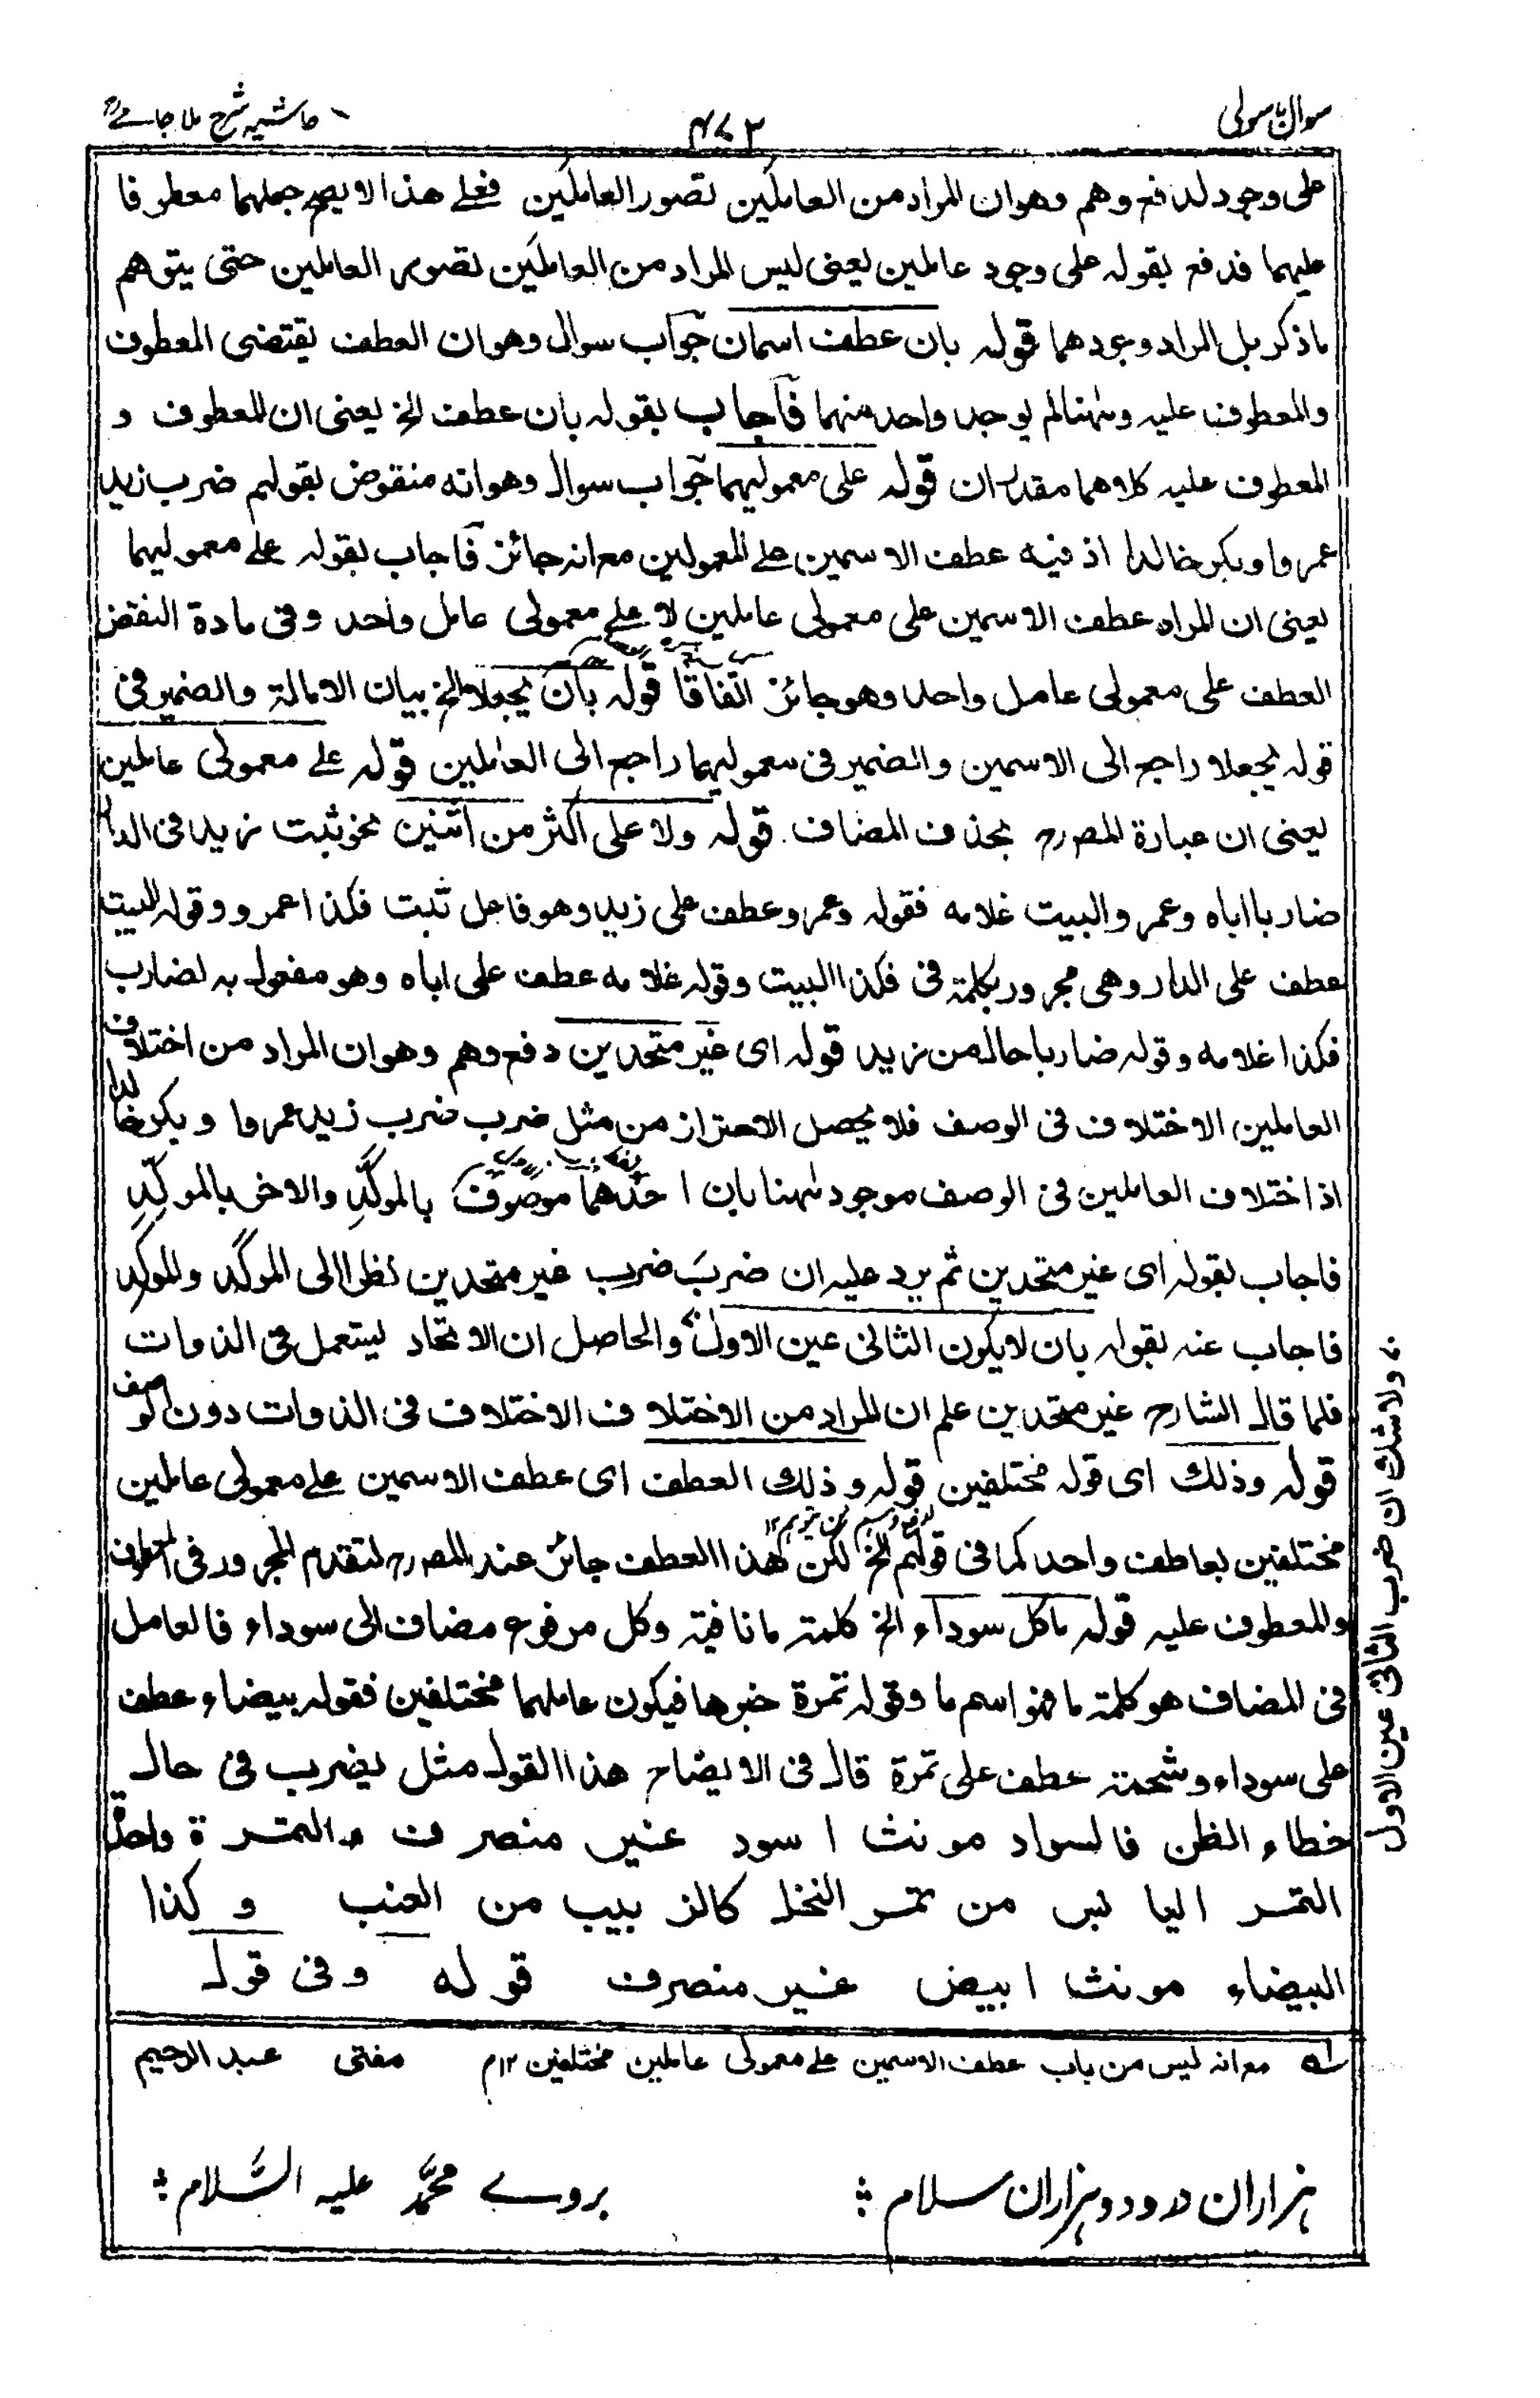 سوال باسولی
۴۷۲
حاشیہ شرح ملا جامے
علی وجود لدفع وهم وهو ان المراد من العاملین تصور العاملین فعلے هذا لا یصح جعلهما معطوفا
علیهما فدفع بقوله علی وجود عاملین یعنی لیس المراد من العاملین تصویر العاملین حتی یتوهم
ما ذکر بل المراد وجودهما قوله بان عطف اسمان جواب سوال وهو ان العطف یقتضی المعطوف
والمعطوف علیه وههنا لم یوجد واحد منهما فاجاب بقوله بان عطف الخ یعنی ان المعطوف و
المعطوف علیه کلاهما مقدران قوله علی معمولیهما جواب سوال وهو انه منقوض بقولهم ضرب زید
عمروا وبکر خالدا اذ فیه عطف الاسمین علے المعمولین مع انه جائز فاجاب بقوله علے معمولیهما
یعنی ان المراد عطف الاسمین علی معمولی عاملین لا علے معمولی عامل واحد وفی مادة النقض
العطف علی معمولی عامل واحد وهو جائز اتفاقا قوله بان یجعلا الخ بیان الامالة والضمیر فی
قوله یجعلا راجع الی الاسمین والضمیر فی معمولیهما راجع الی العاملین قوله علے معمولی عاملین
یعنی ان عبارة المصرح بحذف المضاف. قوله ولا علی اکثر من اثنین نحو ثبت زید فی الدار
ضاربا اباه وعمر والبیت غلامه فقوله وعمرو عطف علی زید وهو فاعل ثبت فکذا عمرو وقوله البیت
عطف علی الدار وهی مجرور بکلمة فی فکذا البیت وقوله غلامه عطف علی اباه وهو مفعول به لضارب
فکذا غلامه وقوله ضاربا حال من زید قوله ای غیر متحدین دفع وهم وهو ان المراد من اختلاف
العاملین الاختلاف فی الوصف فلا یحصل الاحتراز من مثل ضرب ضرب زید عمروا وبکر خالدا
اذ اختلاف العاملین فی الوصف موجود ههنا بان احدهما موصوف بالموکَّدِ والاخر بالموکِّدِ
فاجاب بقوله ای غیر متحدین ثم یرد علیه ان ضربَ ضرب غیر متحدین نظرا الی الموکد والموکد
فاجاب عنه بقوله بان لا یکون الثانی عین الاول والحاصل ان الاتحاد یستعمل فی الذوات
فلما قال الشارح غیر متحدین علم ان المراد من الاختلاف الاختلاف فی الذوات دون الوصف
قوله وذلك ای قوله مختلفین قوله وذلك العطف ای عطف الاسمین علے معمولی عاملین
مختلفین بعاطف واحد کما فی قولهم الخ لکن هذا العطف جائز عند المصرح لتقدم المجرور فی المعطوف
والمعطوف علیه قوله ما کل سوداء الخ کلمة ما نافیة وکل مرفوع مضاف الی سوداء فالعامل
فی المضاف هو کلمة ما فهو اسم ما وقوله تمرة خبرها فیکون عاملهما مختلفین فقوله بیضاء عطف
علی سوداء وشحمة عطف علی تمرة قال فی الایضاح هذا القول مثل یضرب فی حال
خطاء الظن فالسواد مونث اسود غیر منصرف والتمرة واحدة
التمر الیابس من تمر النخل کالزبیب من العنب وکذا
البیضاء مونث ابیض غیر منصرف قوله وفی قوله
ولا شك ان ضرب الثانی عین الاول
له مع انه لیس من باب عطف الاسمین علے معمولی عاملین مختلفین ۱۲م مفتی عبدالرحیم
ہزاران درود و ہزاران سلام
بروے محمّد علیہ السّلام